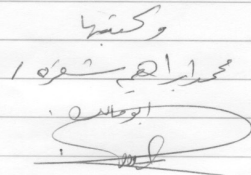 وكتبها
محمد إبراهيم شقرة /
أبو مالك .